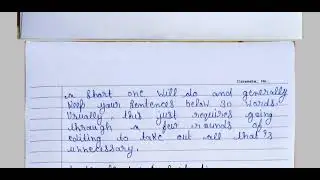 A short one will do and generally
keep your sentences below 30 words.
Usually, this just requires going
through a few rounds of
editing to take out all that's
unnecessary.